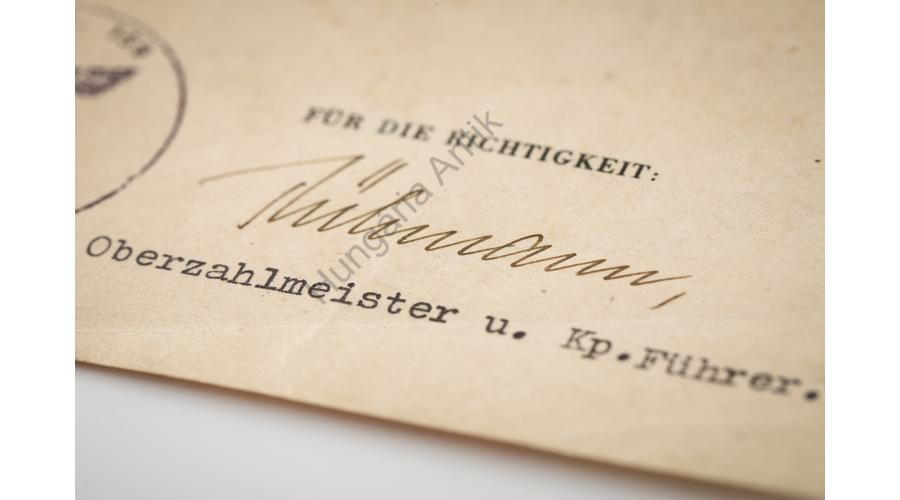 FÜR DIE RICHTIGKEIT:
Oberzahlmeister u. Kp.Führer.
Hungaria Antik